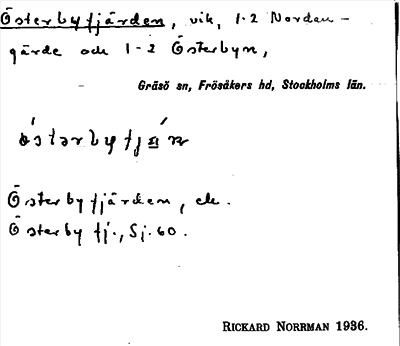 Österbyfjärden, vik, 1-2 Nordan-
gärde och 1-2 Österbyn,
Gräsö sn, Frösåkers hd, Stockholms län.
Österbyfjärden, ek.
Österby fj., Sj. 60.
RICKARD NORRMAN 1936.